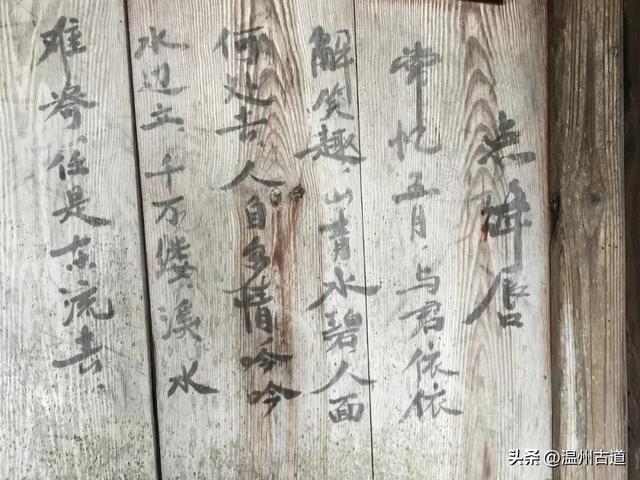 点绛唇
常忆五月,与君依依
解笑趣,山青水碧人面
何处去,人自多情吟吟
水边立,千万缕,溪水
难寄,任是东流去.
头条 @温州古道